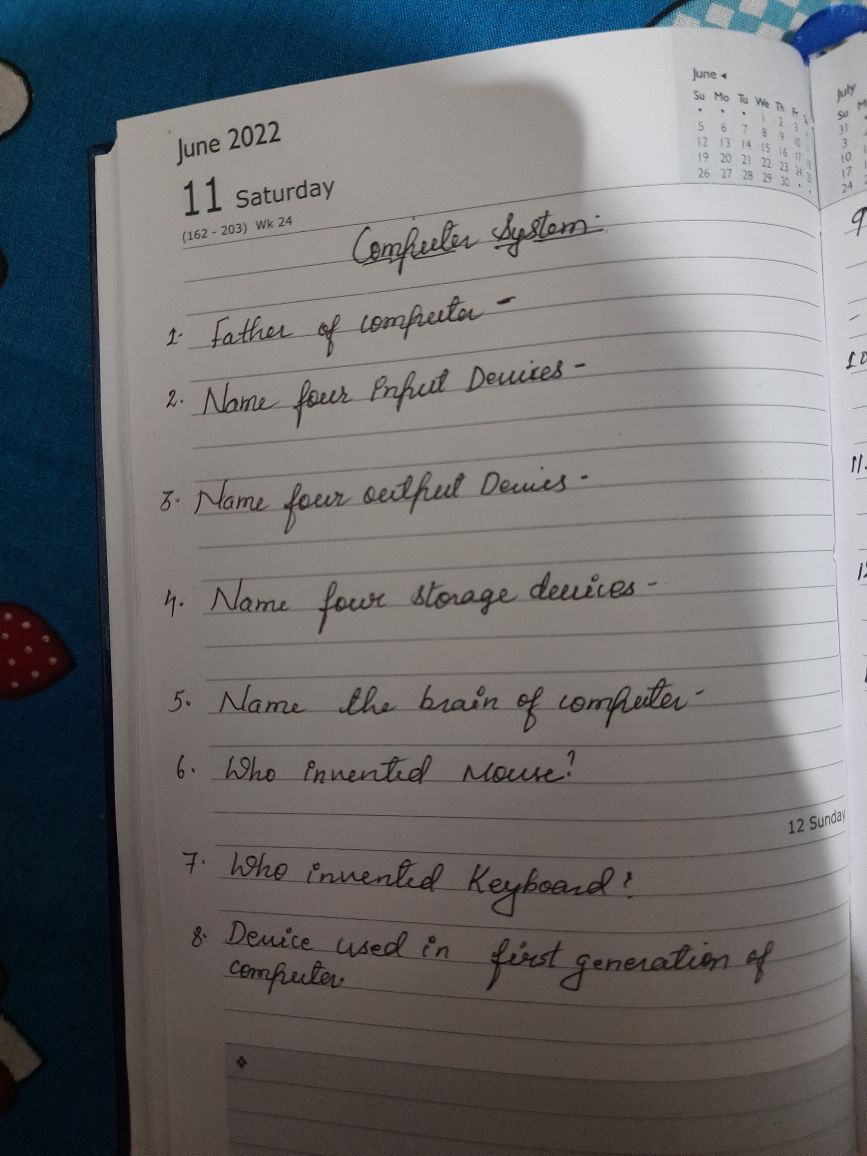 June 2022
11 Saturday
(162 - 203) Wk 24
June
Su Mo Tu We Th Fr
1 2 3
5 6 7 8 9 10
12 13 14 15 16 17
19 20 21 22 23 24
26 27 28 29 30
July
Su
31
3
10
17
24
Computer System
1. Father of computer -
2. Name four Input Devices -
3. Name four output Devies -
4. Name four storage devices -
5. Name the brain of computer -
6. Who invented Mouse?
12 Sunday
7. Who invented Keyboard?
8. Device used in first generation of
computer
10
11.